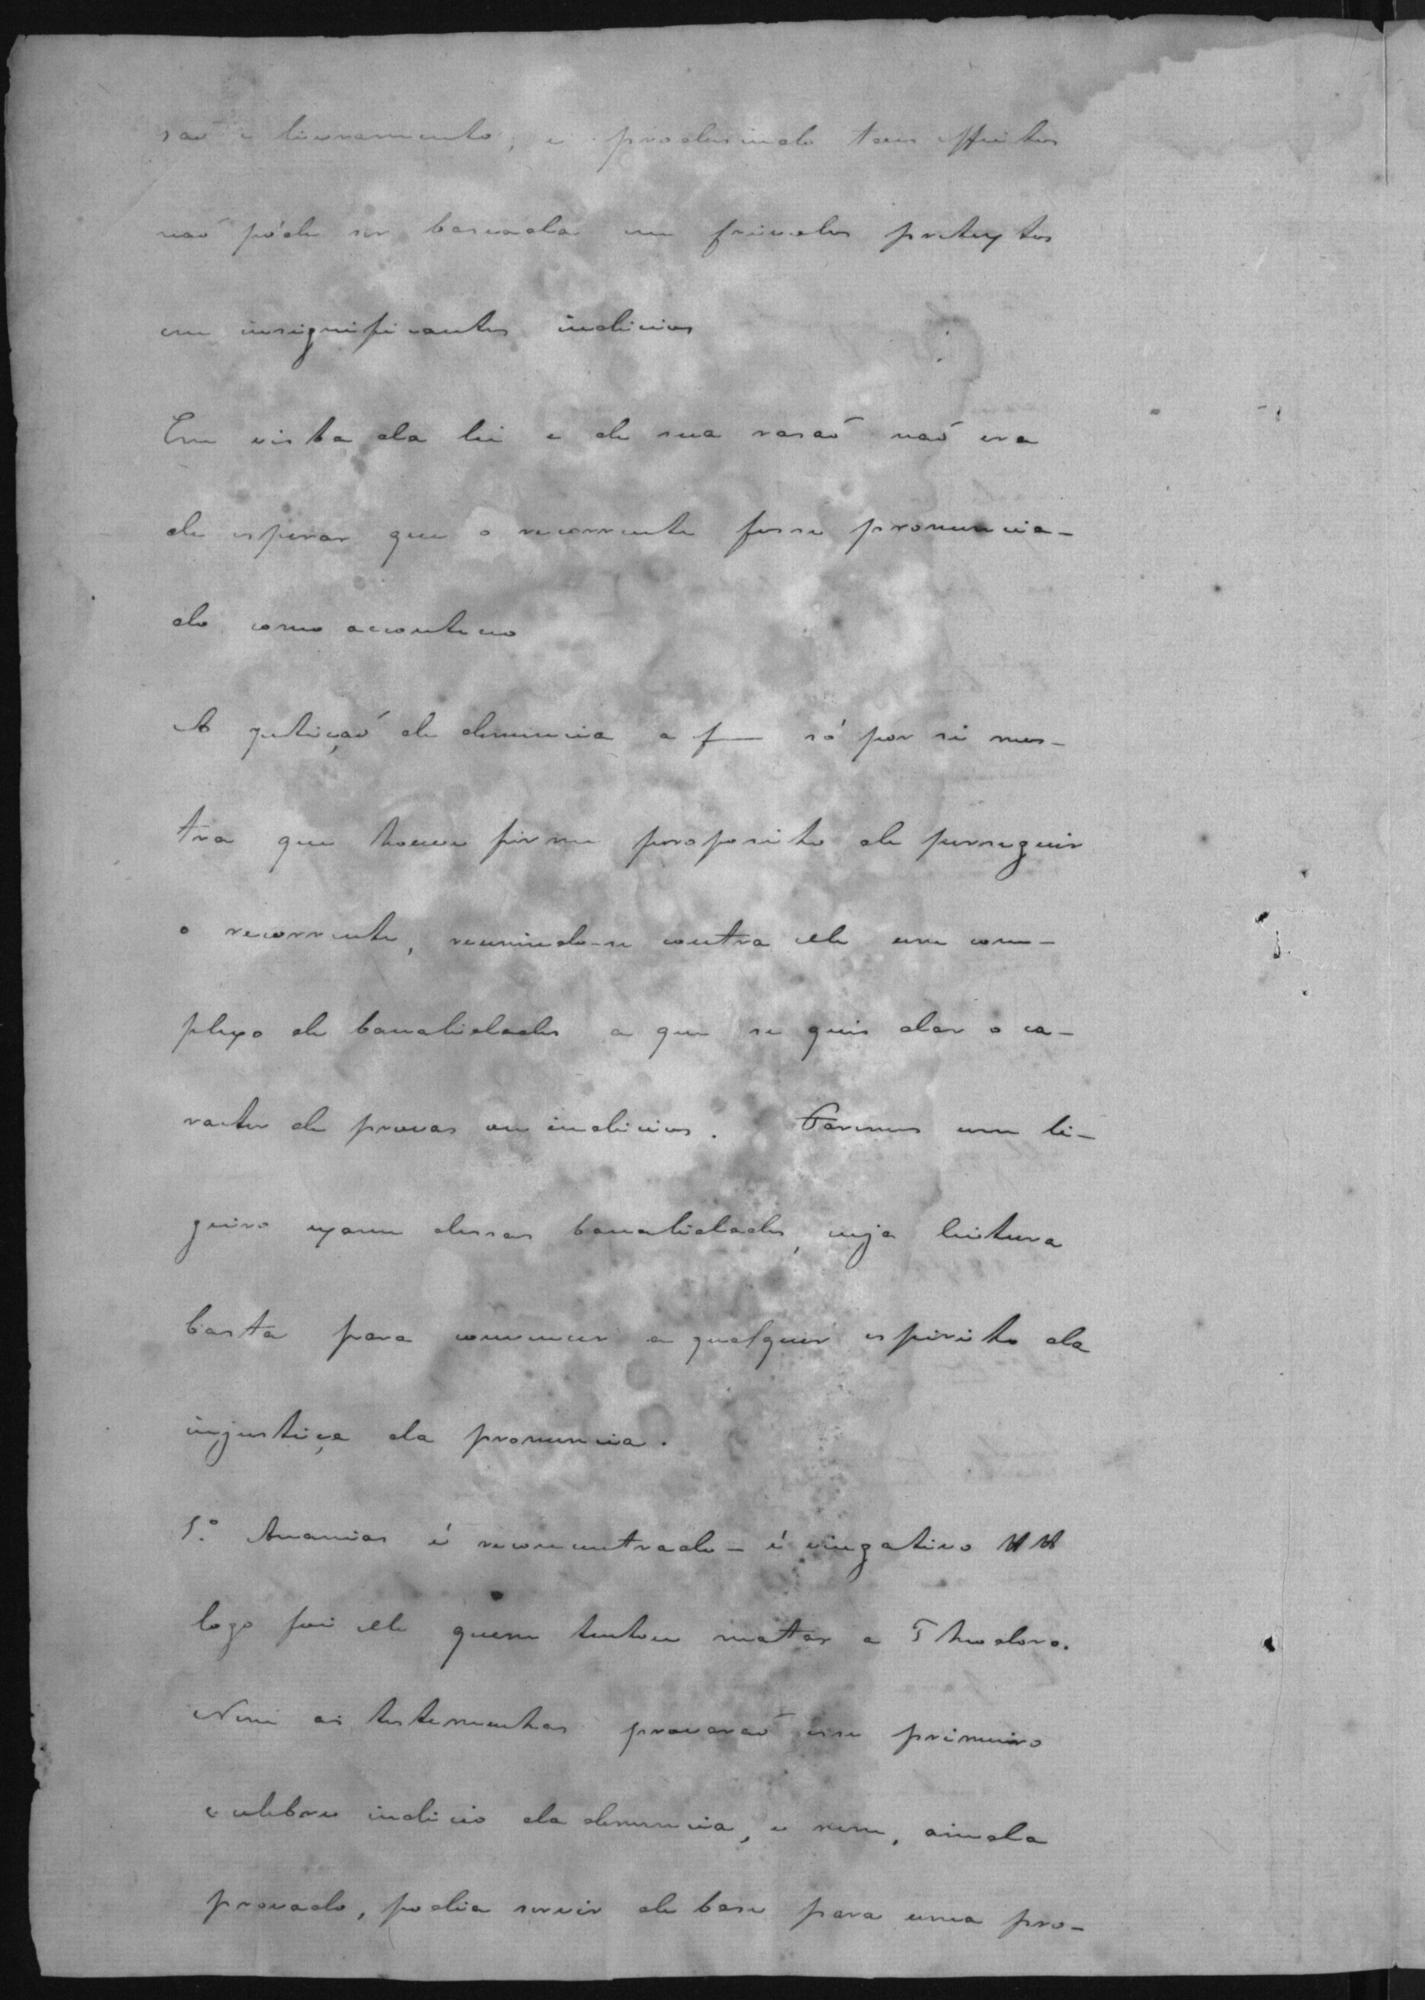 saõ e livramento, e produsindo taes effeitos
naõ póde ser baseada em frivolos pretextos
em insignificantes indicios
Em vista da lei e de sua rasaõ naõ era
de esperar que o recorrente fosse pronuncia-
do como aconteceo
A petiçaõ de denuncia a f— só por si mos-
tra que houve firme proposito de perseguir
o recorrente, reunindo-se contra elle um com-
plexo de banalidades a que se quis dar o ca-
racter de provas ou indicios. Faremos um li-
geiro exame dessas banalidades, cuja leitura
basta para convencer a qualquer espirito da
injustiça da pronuncia.
1.º Ananias é reconcentrado – é vingativo
logo foi elle quem tentou matar a Theodoro.
Nem as testemunhas provaraõ esse primeiro
e celebre indicio da denuncia, e nem, ainda
provado, podia servir de base para uma pro-